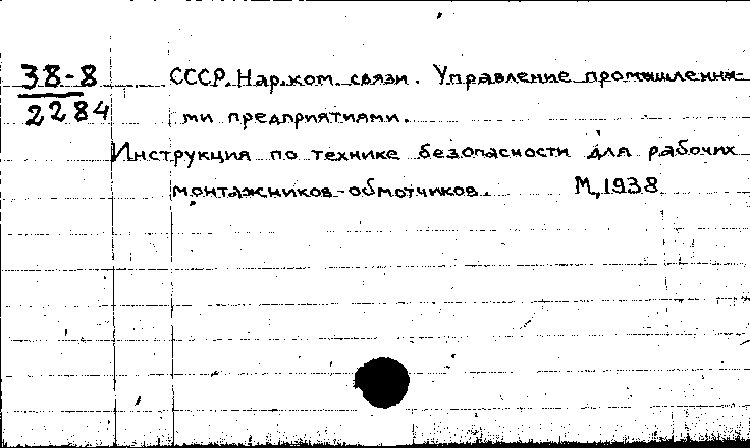 38-8
2284
СССР. Нар.ком. связи. Управление промышленны-
ми предприятиями.
Инструкция по технике безопасности для рабочих
монтажников-обмотчиков. М, 1938